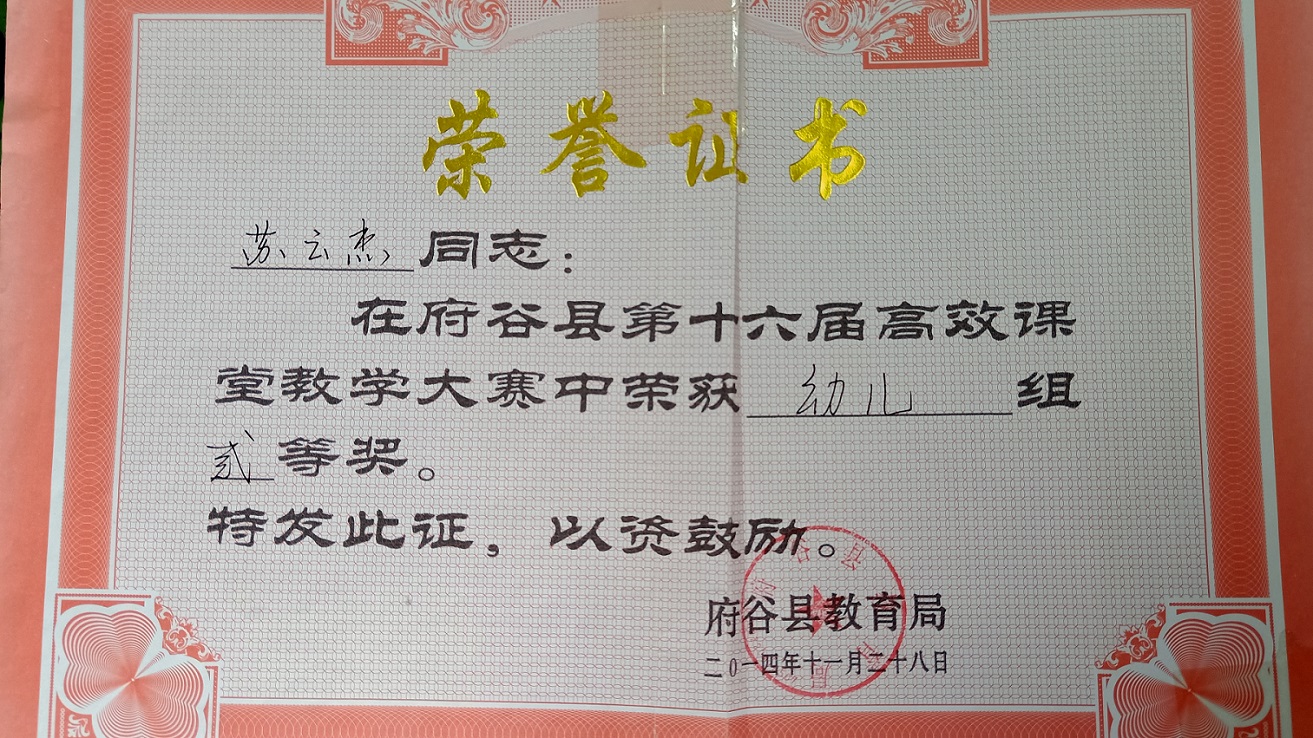 荣誉证书
苏云杰同志：
在府谷县第十六届高效课
堂教学大赛中荣获幼儿组
贰等奖。
特发此证，以资鼓励。
府谷县教育局
二0一四年十一月二十八日